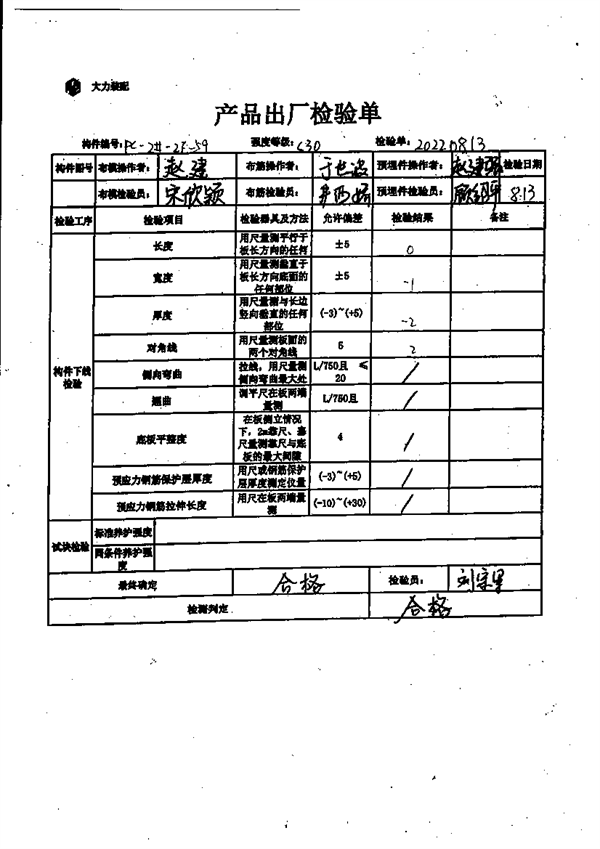 大力装配
产品出厂检验单
构件编号：PC-2#-2F-59 强度等级：C30 检验单：20220813
构件图号 布模操作者： 赵建 布筋操作者： 预埋件操作者： 赵建 检验日期
布模检验员： 宋欣颖 布筋检验员： 预埋件检验员： 8.13
检验工序 检验项目 检验器具及方法 允许偏差 检验结果 备注
构件下线检验
长度 用尺量测平行于板长方向的任何 ±5 0
宽度 用尺量测垂直于板长方向底面的任何部位 ±5 -1
厚度 用尺量测与长边竖向垂直的任何部位 (-3)~(+5) -2
对角线 用尺量测板面的两个对角线 5 2
侧向弯曲 拉线，用尺量测侧向弯曲最大处 L/750且 ≤20 /
翘曲 调平尺在板两端量测 L/750且 /
底板平整度 在板侧立情况下，2m靠尺、塞尺量测靠尺与底板的最大间隙 4 /
预应力钢筋保护层厚度 用尺或钢筋保护层厚度测定仪量 (-3)~(+5) /
预应力钢筋拉伸长度 用尺在板两端量测 (-10)~(+30) /
试块检验 标准养护强度
同条件养护强度
最终确定 合格 检验员：
检测判定 合格